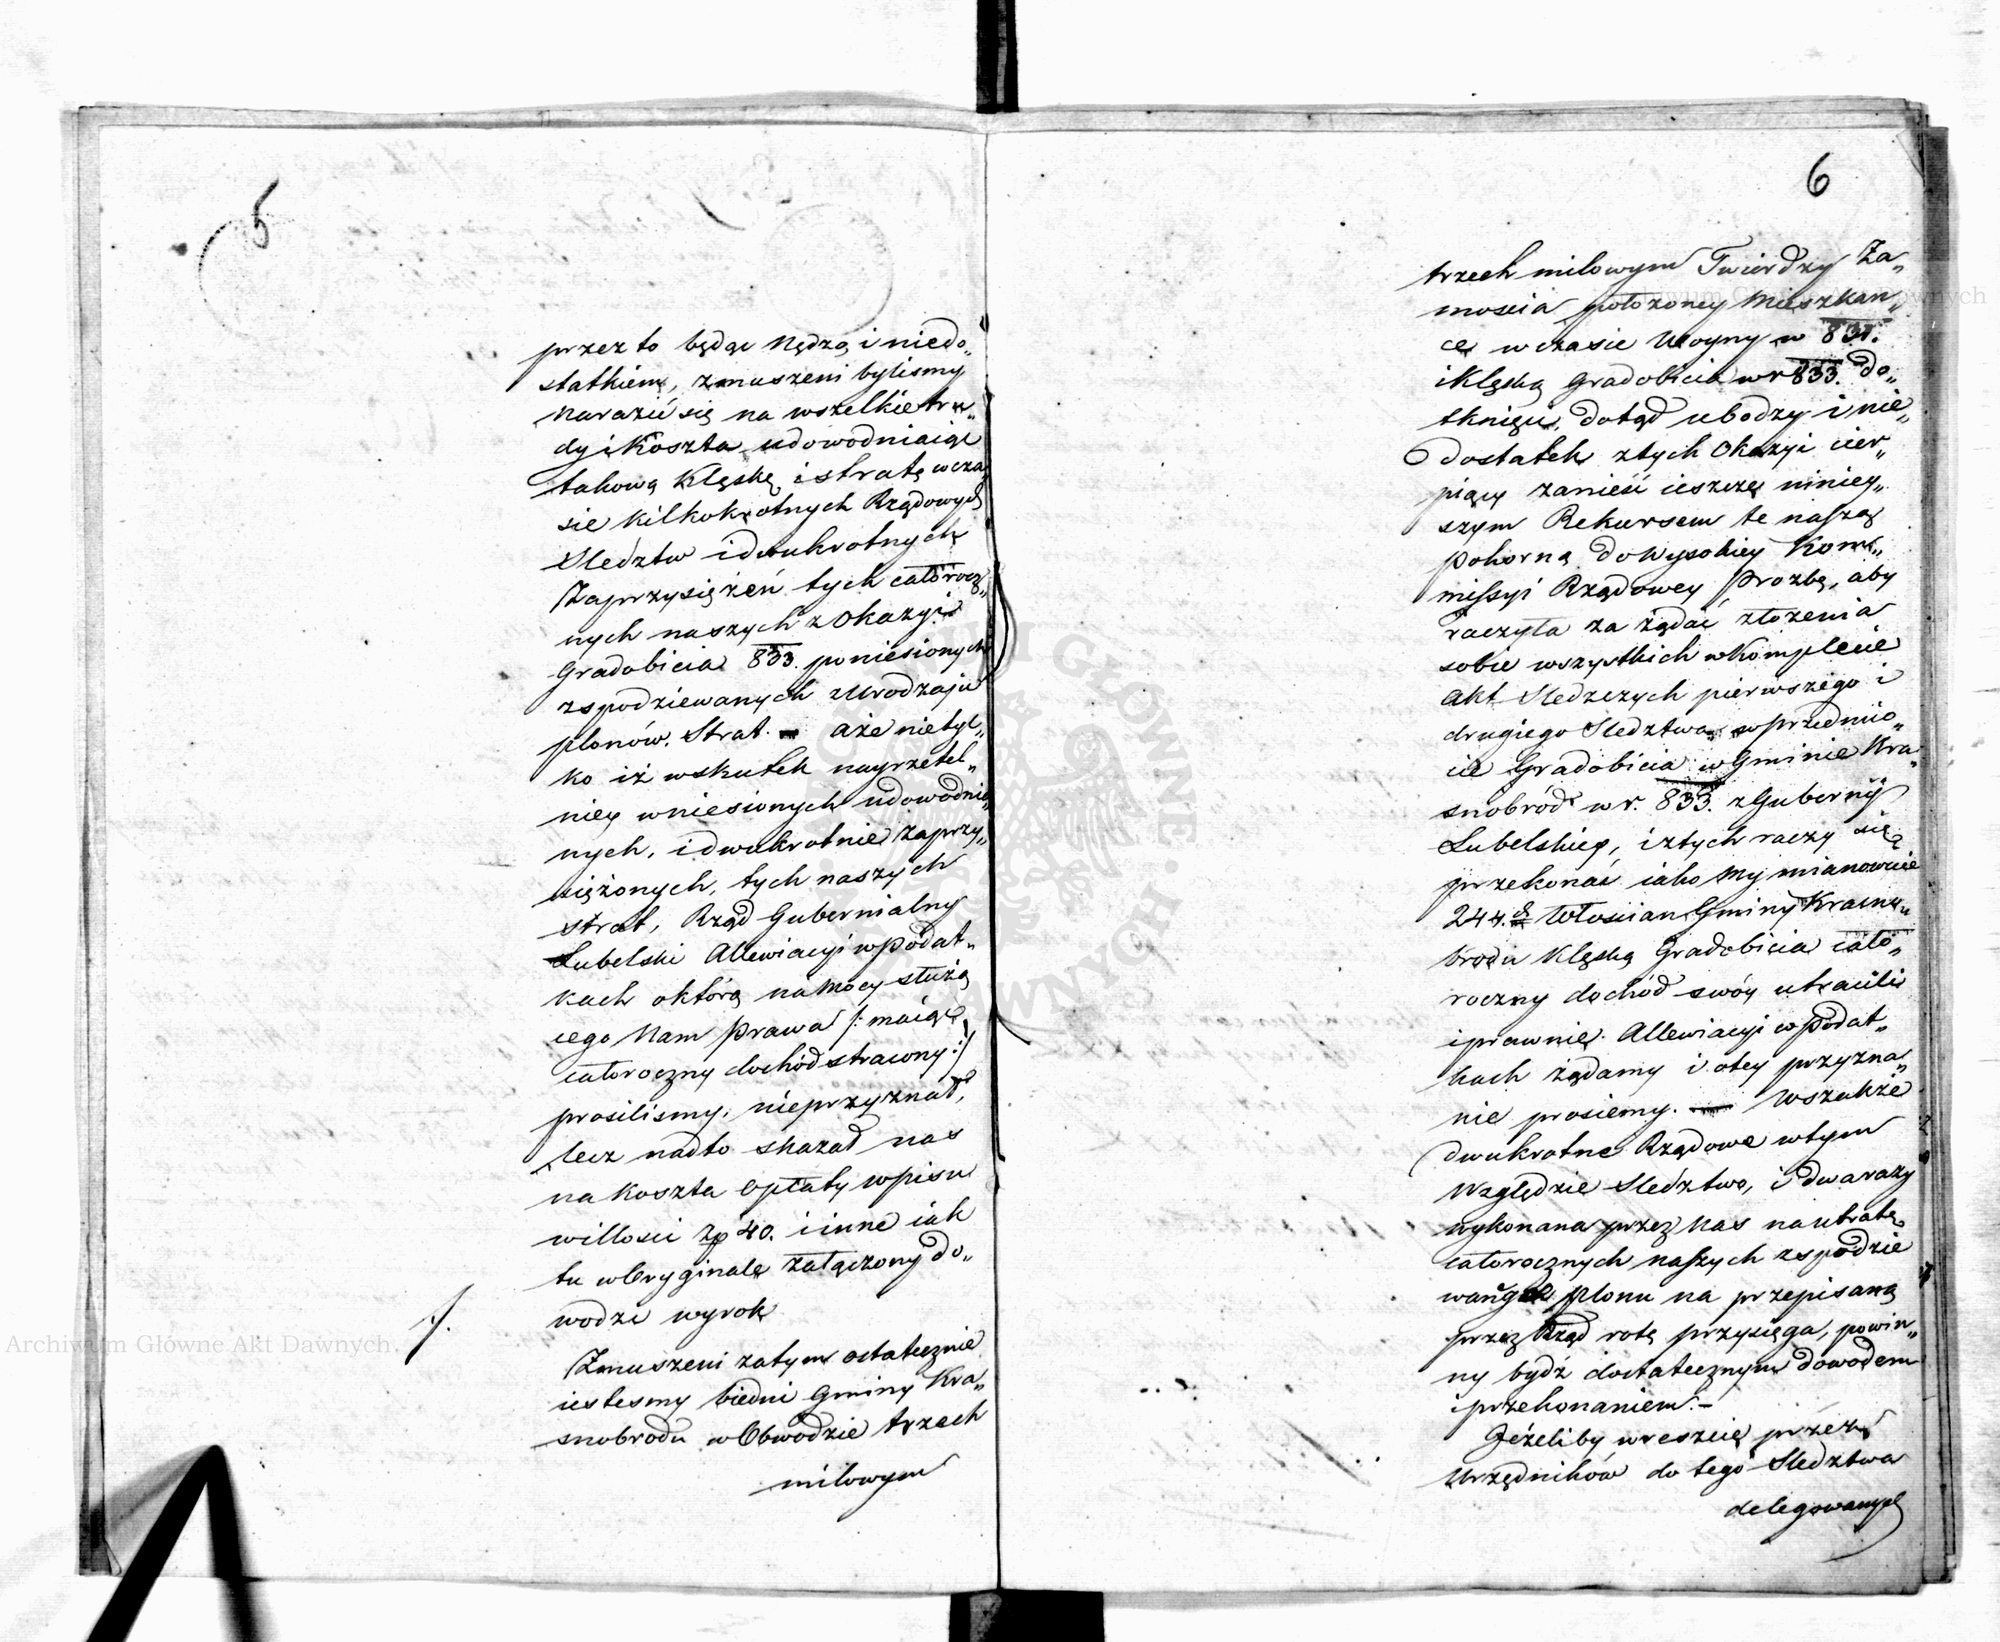 5
przez to będąc nędzą i niedo„
statkiem, zmuszeni bylismy
narazić się na wszelkie tru„
dy i Koszta udowodniaiąc
takową Klęskę i stratę w cza„
sie kilkokrotnych Rządowych
Sledztw i dwukrotnych
Zaprzysiężeń tych całorocz„
nych naszych z okazyi
Gradobicia 833. poniesionych
zspodziewanych z Urodzaju
plonów. Strat. — aże nietyl„
ko iż wskutek nayrzetel„
niey wniesionych udowodnio„
nych, i dwukrotnie zaprzy„
siężonych, tych naszych
strat, Rząd Gubernialny
Lubelski Allewiacyi w podat„
kach o którą na mocy służą
cego Nam prawa /: maiąc
całoroczny dochód stracony :/
prosilismy, nieprzyznał,
lecz nadto skazał nas
na koszta opłaty wpisu
w illosci Zp 40. i inne iak
tu w Oryginale załączony do„
wodzi wyrok
1.
Zmuszeni zatym ostatecznie
iestesmy biedni Gminy Kra„
snobrodu w Obwodzie trzech
milowym
6
trzech milowym Twierdzy Za„
moscia położoney Mieszkan„
ce w czasie Woyny w 831.
i Klęską Gradobicia w r 833. do„
tknięci, dotąd ubodzy i nie„
dostatek z tych Okazyi cier„
piący zanieść ieszcze niniey„
szym Rekursem te naszą
pokorną do Wysokiey Kom„
missyi Rządowey Prozbę, aby
raczyła za żądać złożenia
sobie wszystkich w Komplecie
Akt Sledczych pierwszego i
drugiego Sledztwa w przedmio„
cie Gradobicia w Gminie Kra„
snobród w r. 833. z Gubernÿ
Lubelskiey, i z tych raczy się
przekonać iako My mianowicie
244. Włoscian Gminy Krasno„
brodu Klęską Gradobicia cało„
roczny dochód swóy utracili
i prawnie Allewiacyi w podat„
kach żądamy i o tey przyzna„
nie prosiemy. — Wszakże
dwukrotne Rządowe w tym
Względzie Sledztwo, i dwa razy
wykonana przez Nas na utratę
całorocznych naszych zspodzie
wanych plonu na przepisaną
przez Rząd rotę przysięga, powin„
ny bydź dostatecznym dowodem
i przekonaniem. —
Jeżeliby wreszcie przez
Urzędników do tego Sledztwa
delegowanych
Archiwum Główne Akt Dawnych